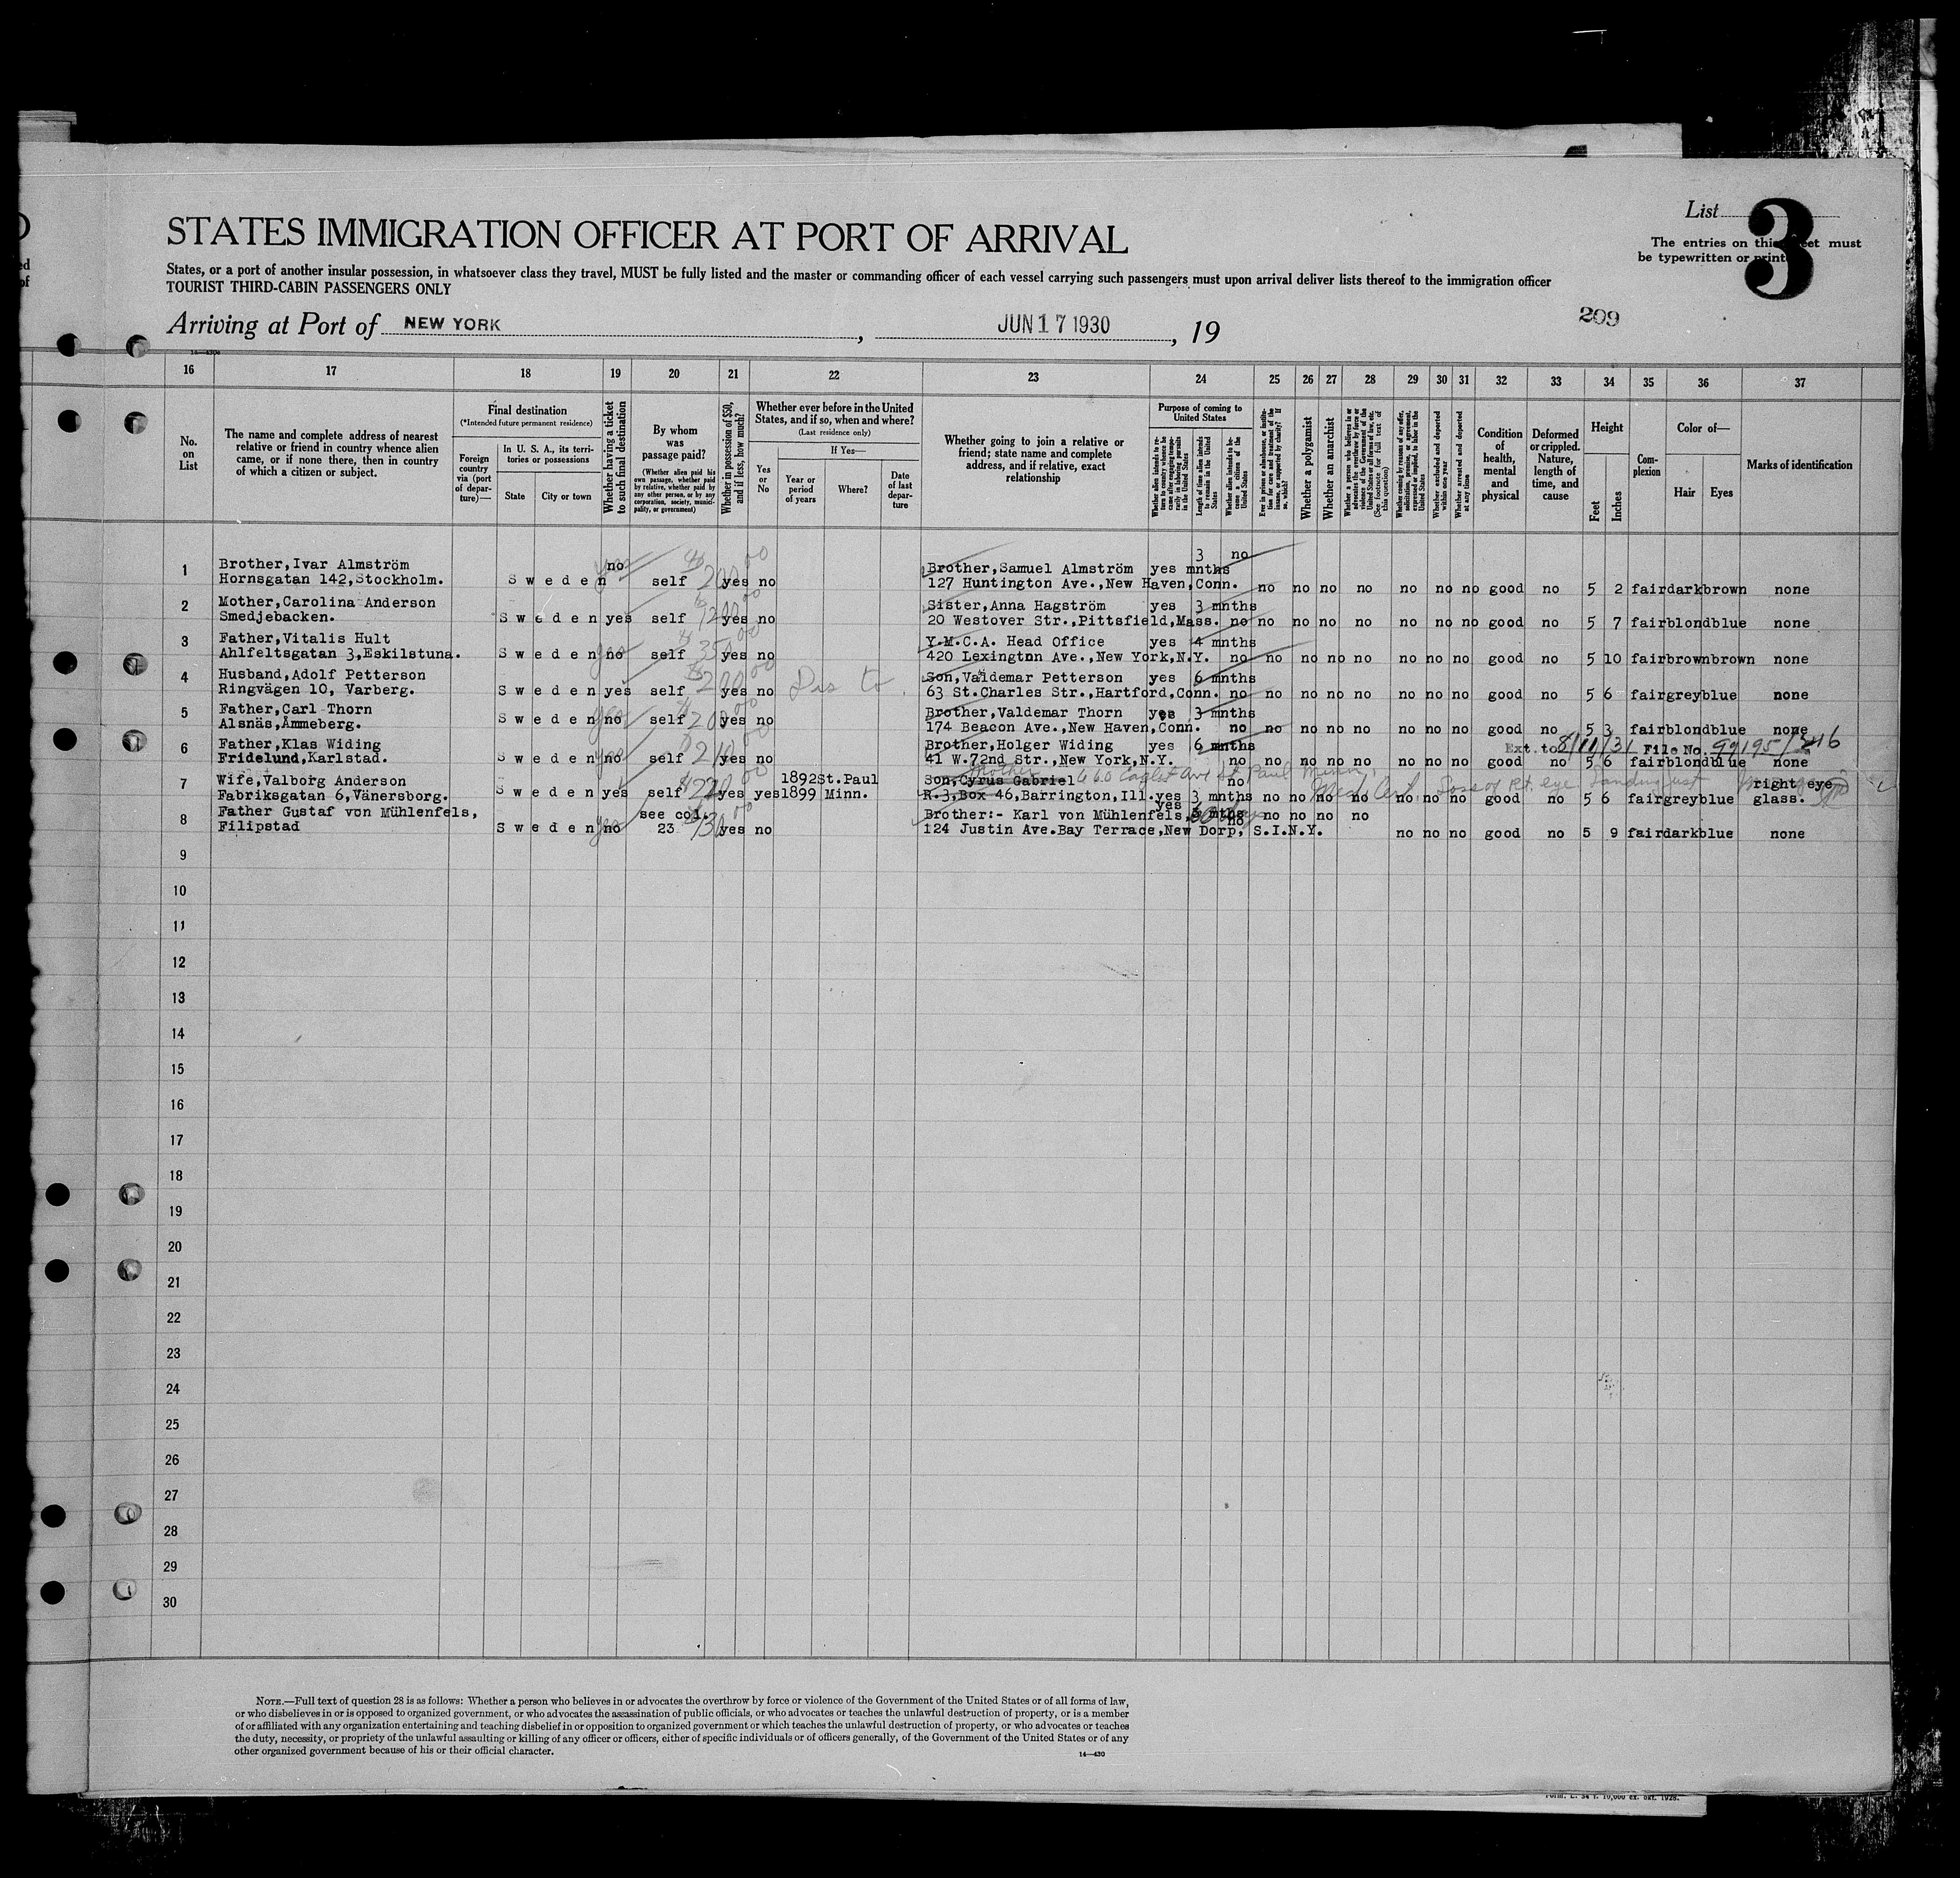 List 3
The entries on this sheet must
be typewritten or printed
STATES IMMIGRATION OFFICER AT PORT OF ARRIVAL
States, or a port of another insular possession, in whatsoever class they travel, MUST be fully listed and the master or commanding officer of each vessel carrying such passengers must upon arrival deliver lists thereof to the immigration officer
TOURIST THIRD-CABIN PASSENGERS ONLY
Arriving at Port of NEW YORK, JUN 17 1930, 19
209
16 17 18 19 20 21 22 23 24 25 26 27 28 29 30 31 32 33 34 35 36 37
No. on List
The name and complete address of nearest
relative or friend in country whence alien
came, or if none there, then in country
of which a citizen or subject.
Final destination
(*Intended future permanent residence)
Foreign country via (port of departure)—
In U. S. A., its territories or possessions
State
City or town
Whether having a ticket to such final destination
By whom was passage paid?
(Whether alien paid his own passage, whether paid by relative, whether paid by any other person, or by any corporation, society, municipality, or government)
Whether in possession of $50, and if less, how much?
Whether ever before in the United States, and if so, when and where?
(Last residence only)
Yes or No
If Yes—
Year or period of years
Where?
Date of last departure
Whether going to join a relative or
friend; state name and complete
address, and if relative, exact
relationship
Purpose of coming to United States
Whether alien intends to return to country whence he came after engaging temporarily in laboring pursuits in the United States
Length of time alien intends to remain in the United States
Whether alien intends to become a citizen of the United States
Whether a polygamist
Whether an anarchist
Whether excluded and deported within one year
Whether arrested and deported at any time
Condition of health, mental and physical
Deformed or crippled. Nature, length of time, and cause
Height
Feet
Inches
Complexion
Color of—
Hair
Eyes
Marks of identification
3 no
1 Brother,Ivar Almström no Brother,Samuel Almström yes mnths
Hornsgatan 142,Stockholm. Sweden self yes no 127 Huntington Ave.,New Haven,Conn. no no no no no no no good no 5 2 fair dark brown none
2 Mother,Carolina Anderson Sister,Anna Hagström yes 3 mnths
Smedjebacken. Sweden yes self yes no 20 Westover Str.,Pittsfield,Mass. no no no no no no no no good no 5 7 fair blond blue none
3 Father,Vitalis Hult Y.M.C.A. Head Office yes 4 mnths
Ahlfeltsgatan 3,Eskilstuna. Sweden no self yes no 420 Lexington Ave.,New York,N.Y. no no no no no no no no good no 5 10 fair brown brown none
4 Husband,Adolf Petterson Son,Valdemar Petterson yes 6 mnths
Ringvägen 10, Varberg. Sweden yes self yes no 63 St.Charles Str.,Hartford,Conn. no no no no no no no no good no 5 6 fair grey blue none
5 Father,Carl Thorn Brother,Valdemar Thorn yes 3 mnths
Alsnäs,Åmmeberg. Sweden no self yes no 174 Beacon Ave.,New Haven,Conn. no no no no no no no no good no 5 3 fair blond blue none
6 Father,Klas Widing Brother,Holger Widing yes 6 mnths Ext. to 8/11/31 File No.
Fridelund,Karlstad. Sweden no self yes no 41 W.72nd Str.,New York,N.Y. no no no no no no no no good no 5 6 fair blond blue none
7 Wife,Valborg Anderson 1892 St.Paul Son,Cyrus Gabriel no right eye
Fabriksgatan 6,Vänersborg. Sweden yes self yes yes 1899 Minn. R.3,Box 46,Barrington,Ill. yes 3 mnths no no no no no no no good no 5 6 fair grey blue glass.
8 Father Gustaf von Mühlenfels, see col. Brother:- Karl von Mühlenfels, yes mths no no no no
Filipstad Sweden no 23 yes no 124 Justin Ave.Bay Terrace,New Dorp, S.I.N.Y. no no no no good no 5 9 fair dark blue none
9
10
11
12
13
14
15
16
17
18
19
20
21
22
23
24
25
26
27
28
29
30
NOTE.—Full text of question 28 is as follows: Whether a person who believes in or advocates the overthrow by force or violence of the Government of the United States or of all forms of law,
or who disbelieves in or is opposed to organized government, or who advocates the assassination of public officials, or who advocates or teaches the unlawful destruction of property, or is a member
of or affiliated with any organization entertaining and teaching disbelief in or opposition to organized government or which teaches the unlawful destruction of property, or who advocates or teaches
the duty, necessity, or propriety of the unlawful assaulting or killing of any officer or officers, either of specific individuals or of officers generally, of the Government of the United States or of any
other organized government because of his or their official character.
14—430